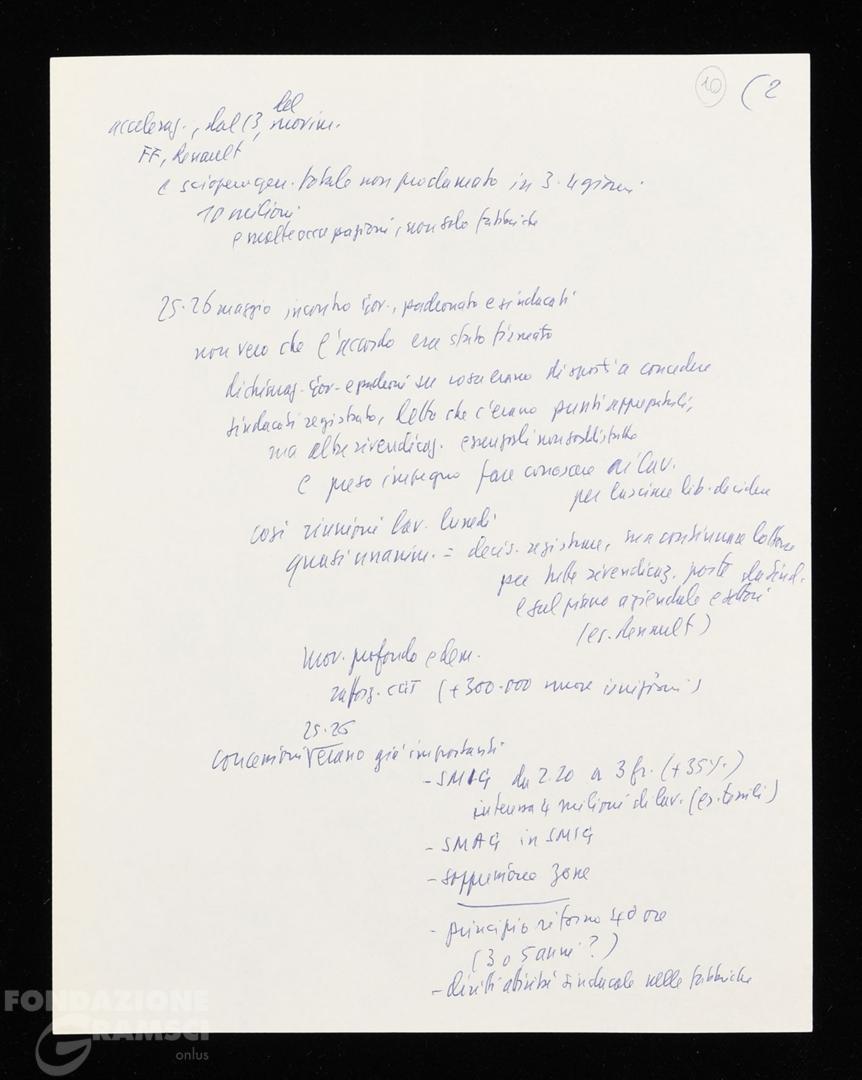 10 (2
acceleraz., dal 13, del movim.
FF, Renault
e sciopero gen. totale non proclamato in 3-4 giorni
10 milioni
e molte occupazioni, non solo fabbriche
25-26 maggio incontro gov., padronato e sindacati
non vero che l'accordo era stato firmato
dichiaraz. gov. e padroni su cosa erano disposti a concedere
sindacati registrato, detto che c'erano punti apprezzabili,
ma altre rivendicaz. essenziali non soddisfatte
e preso impegno fare conoscere ai lav.
per lasciare lib. decidere
così riunioni lav. lunedì
quasi unanim. = decis. registrare, ma continuare lotta
per tutte rivendicaz. poste da sind.
e sul piano aziendale e settori
(es. Renault)
Mov. profondo e dem.
rafforz. CGT (+300.000 nuove iscrizioni)
25-26
concessioni erano già importanti
- SMIG da 2.20 a 3 fr. (+35%)
interessa 4 milioni di lav. (es. tessili)
- SMAG in SMIG
- soppressione zone
- principio ritorno 40 ore
(3 o 5 anni?)
- diritti attività sindacale nelle fabbriche
FONDAZIONE
GRAMSCI
onlus